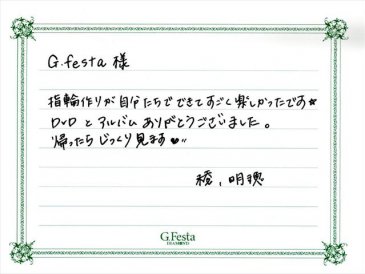 G.festa 様
指輪作りが自分たちでできてすごく楽しかったです★
DVDとアルバムありがとうございました。
帰ったらじっくり見ます♥"
G.Festa
DIAMOND